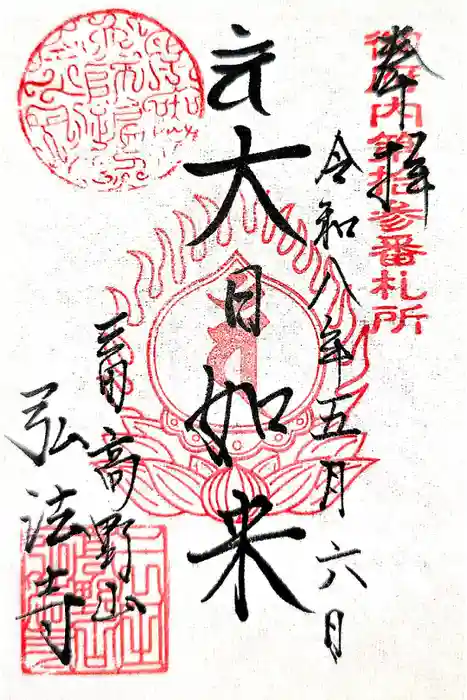 奉拝
御府内第拾参番札所
令和八年五月六日
大日如来
三田高野山
弘法寺